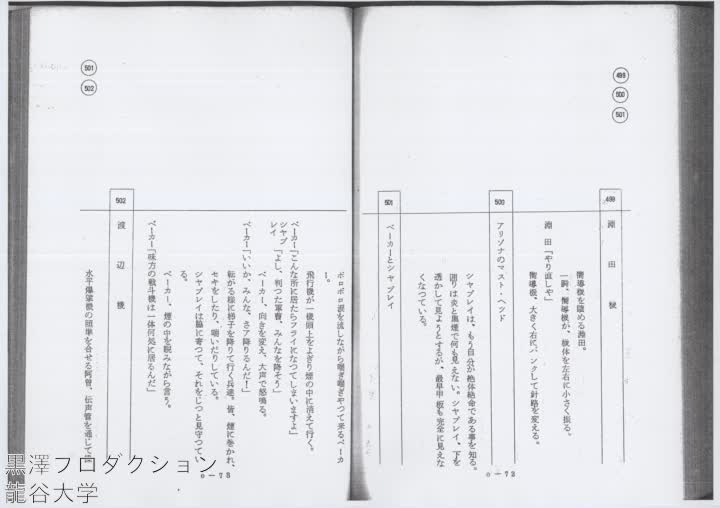 499
500
501
499
淵田機
衝導機を睨める淵田。
一瞬、衝導機が、機体を左右に小さく振る。
淵田「やり直しや」
衝導機、大きく右にバンクして針路を変える。
500
アリゾナのマスト・ヘッド
シャプレイは、もう自分が絶体絶命である事を知る。
廻りは炎と黒煙で何も見えない。シャプレイ、下を
透かして見ようとするが、最早甲板も完全に見えな
くなつている。
501
ベーカーとシャプレイ
o—72
501
502
ボロボロ涙を流しながら喘ぎ喘ぎやつて来るベーカ
ー。
飛行機が一機頭上をよぎり煙の中に消えて行く。
ベーカー「こんな所に居たらフライになつてしまいますよ」
シャプレイ「よし、判つた軍曹、みんなを降そう」
ベーカー、向きを変え、大声で怒鳴る。
ベーカー「いいか、みんな、さア降りるんだ！」
転がる様に梯子を降りて行く兵達。皆、煙に巻かれ、
セキをしたり、喘いだりしている。
シャプレイは脇に寄つて、それをじつと見守つてい
る。
ベーカー、煙の中を睨みながら言う。
ベーカー「味方の戦斗機は一体何処に居るんだ」
502
渡辺機
水平爆撃機の照準を合せる阿曽、伝声管を通じて
o—73
黒澤プロダクション
龍谷大学